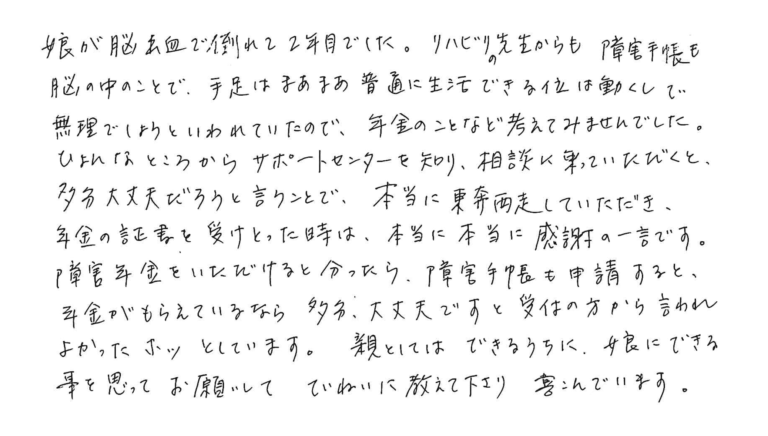 娘が脳出血で倒れて2年目でした。リハビリの先生からも障害手帳も
脳の中のことで、手足はまあまあ普通に生活できる位は動くしで
無理でしょうといわれていたので、年金のことなど考えてみませんでした。
ひょんなところからサポートセンターを知り、相談に乗っていただくと、
多分大丈夫だろうと言うことで、本当に東奔西走していただき、
年金の証書を受けとった時は、本当に本当に感謝の一言です。
障害年金をいただけると分ったら、障害手帳も申請すると、
年金がもらえているなら多分、大丈夫ですと受付の方から言われ
よかったホッとしています。親としてはできるうちに、娘にできる
事を思ってお願いしてていねいに教えて下さり喜こんでいます。